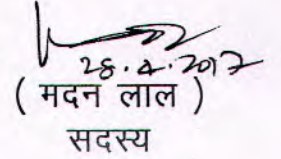 28.4.2017
( मदन लाल )
सदस्य